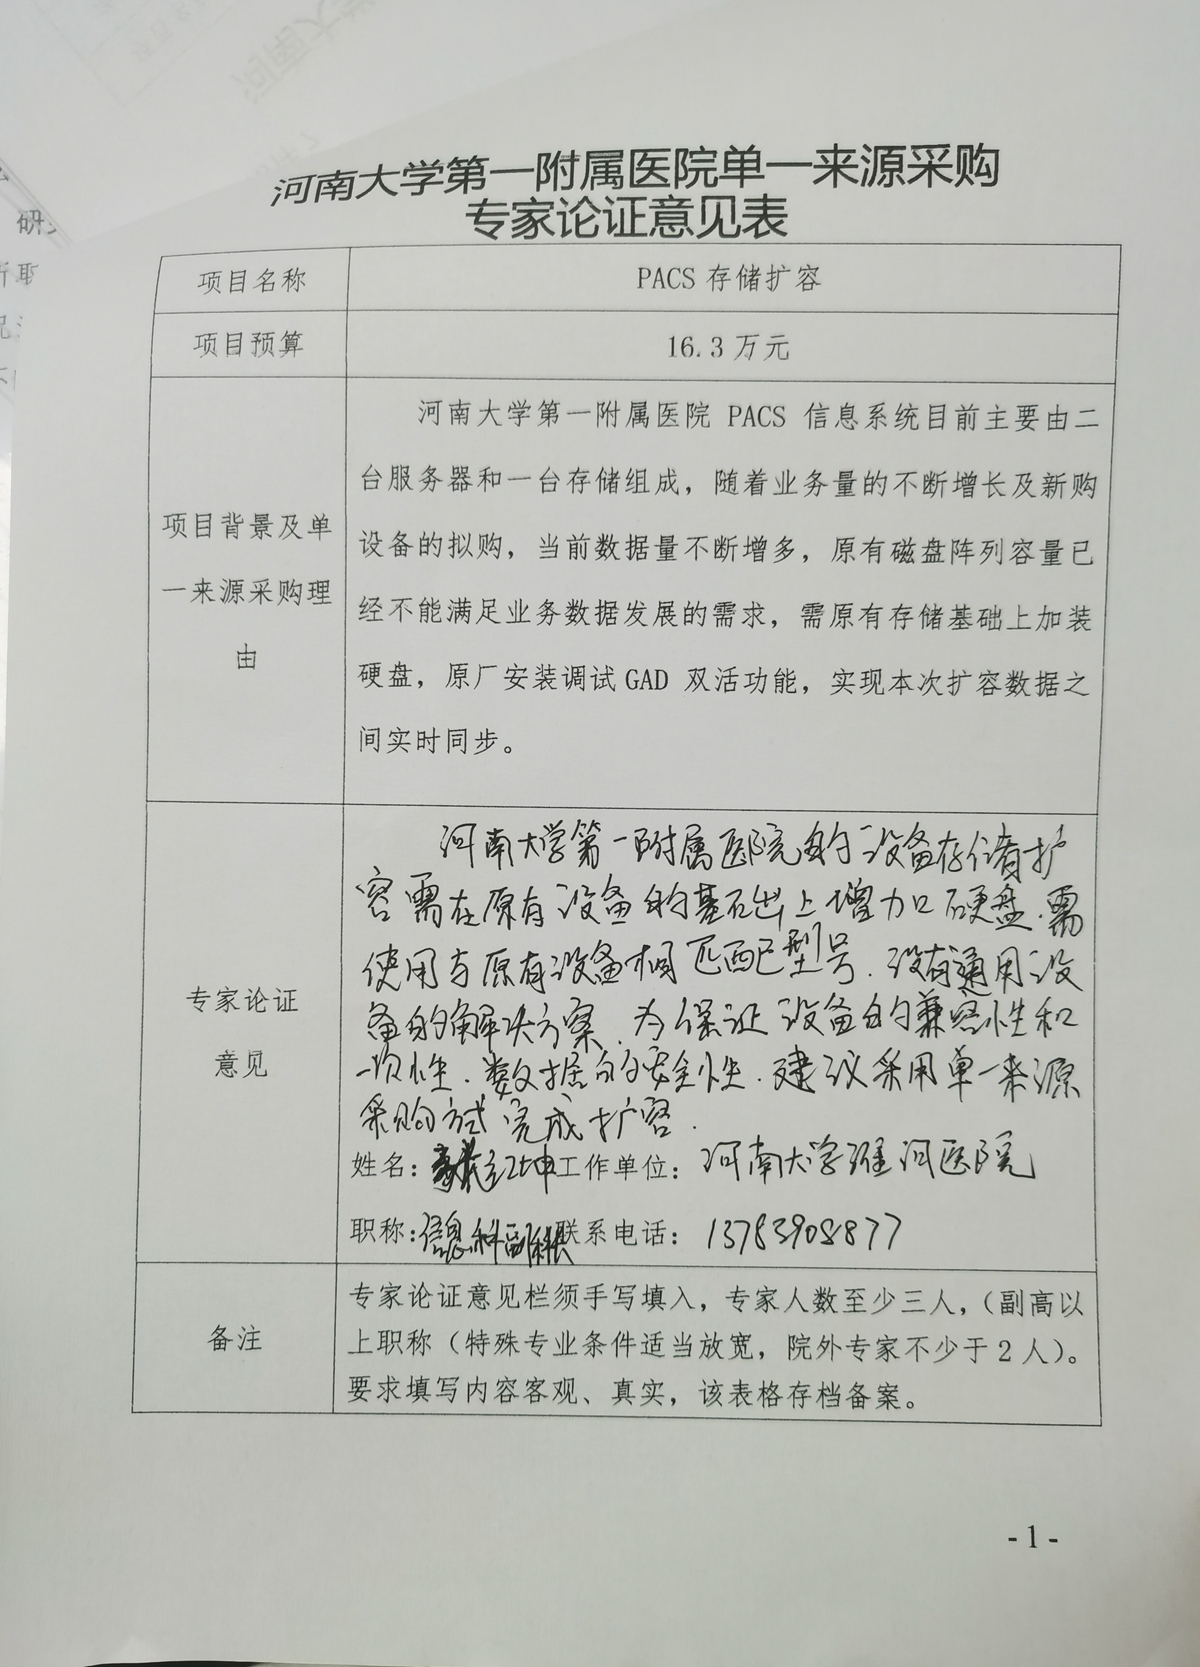 河南大学第一附属医院单一来源采购
专家论证意见表
项目名称
PACS 存储扩容
项目预算
16.3 万元
项目背景及单
一来源采购理
由
河南大学第一附属医院 PACS 信息系统目前主要由二
台服务器和一台存储组成，随着业务量的不断增长及新购
设备的拟购，当前数据量不断增多，原有磁盘阵列容量已
经不能满足业务数据发展的需求，需原有存储基础上加装
硬盘，原厂安装调试 GAD 双活功能，实现本次扩容数据之
间实时同步。
专家论证
意见
河南大学第一附属医院的设备存储扩
容需在原有设备的基础上增加硬盘.需
使用与原有设备相匹配型号.没有通用设
备的解决方案.为保证设备的兼容性和
一次性.数据的安全性.建议采用单一来源
采购方式完成扩容.
姓名：红坤工作单位：河南大学淮河医院
职称：信息科副科长联系电话：13783908877
备注
专家论证意见栏须手写填入，专家人数至少三人，（副高以
上职称（特殊专业条件适当放宽，院外专家不少于2人）。
要求填写内容客观、真实，该表格存档备案。
- 1 -
研